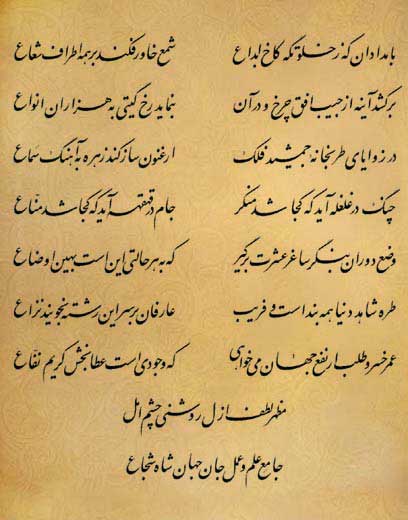 بامدادان که ز خلوتگه کاخ ابداع شمع خاور فکند بر همه اطراف شعاع
برکشد آینه از جیب افق چرخ و در آن بنماید رخ گیتی به هزاران انواع
در زوایای طربخانهٔ جمشید فلک ارغنون ساز کند زهره به آهنگ سماع
چنگ در غلغله آید که کجا شد منکر جام در قهقهه آید که کجا شد مناع
وضع دوران بنگر ساغر عشرت برگیر که به هر حالتی این است بهین اوضاع
طره شاهد دنیا همه بند است و فریب عارفان بر سر این رشته نجویند نزاع
عمر خسرو طلب ار نفع جهان می‌خواهی که وجودی است عطابخش کریم نفاع
مظهر لطف ازل روشنی چشم امل
جامع علم و عمل جان جهان شاه شجاع